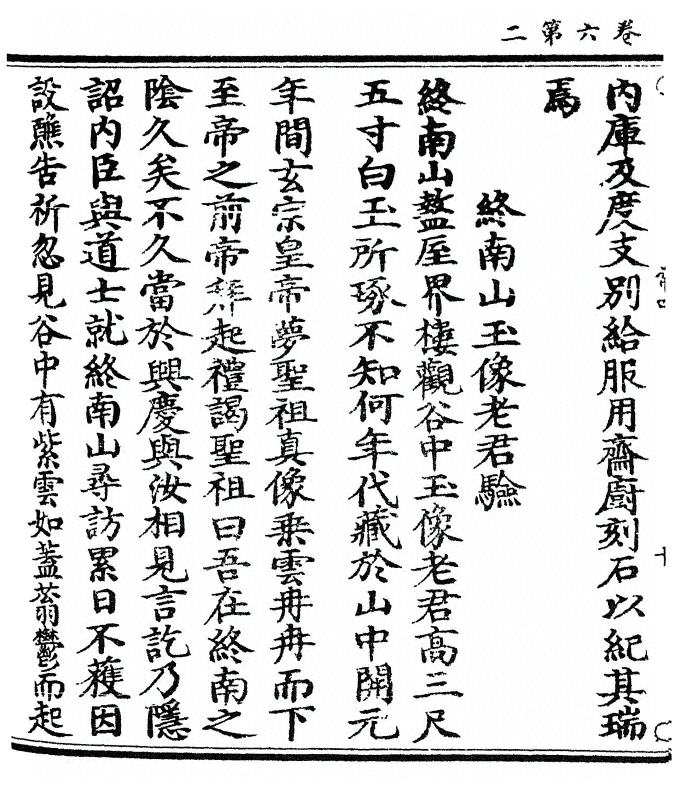 卷六第二
內庫及度支別給服用齋廚刻石以紀其瑞
焉
終南山玉像老君驗
終南山盩厔界樓觀谷中玉像老君高三尺
五寸白玉所琢不知何年代藏於山中開元
年間玄宗皇帝夢聖祖真像乗雲冉冉而下
至帝之前帝拜起禮謁聖祖曰吾在終南之
陰久矣不久當於興慶與汝相見言訖乃隱
詔內臣與道士就終南山尋訪累日不獲因
設醮告祈忽見谷中有紫雲如蓋蓊鬱而起